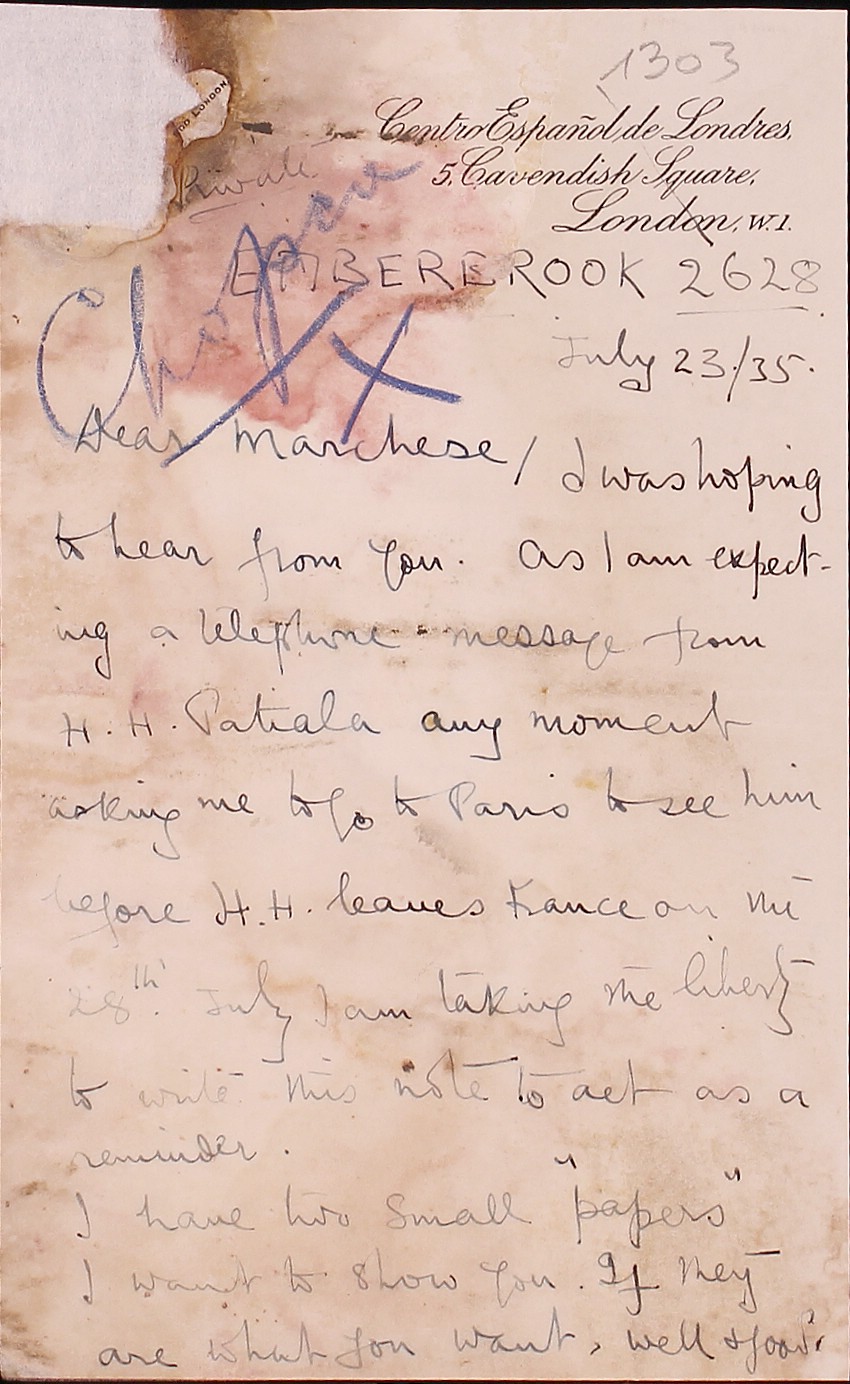 1303
DD LONDON
Centro Español de Londres,
5, Cavendish Square,
London, W.1.
Private
EMBERBROOK 2628
July 23/35.
Dear Marchese/ I was hoping
to hear from you. As I am expect-
ing a telephone message from
H.H. Patiala any moment
asking me to go to Paris to see him
before H.H. leaves France on the
28th. July I am taking the liberty
to write this note to act as a
reminder.
I have two small "papers"
I want to show you. If they
are what you want, well & good.